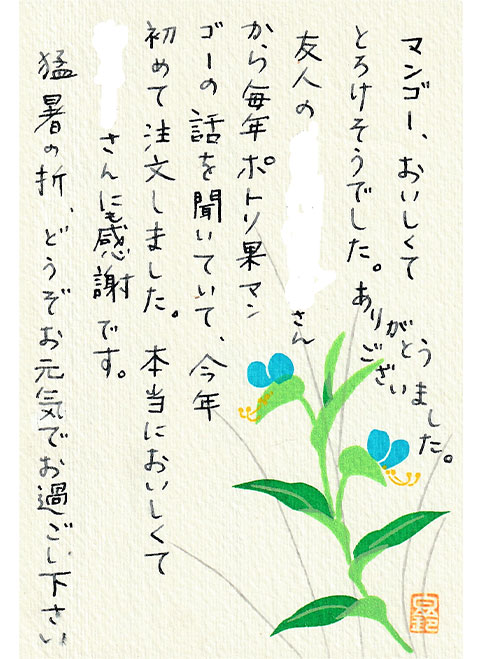 マンゴー、おいしくて
とろけそうでした。ありがとうございました。
友人の　さん
から毎年ポトリ果マン
ゴーの話を聞いていて、今年
初めて注文しました。本当においしくて
さんにも感謝です。
猛暑の折、どうぞお元気でお過ごし下さい